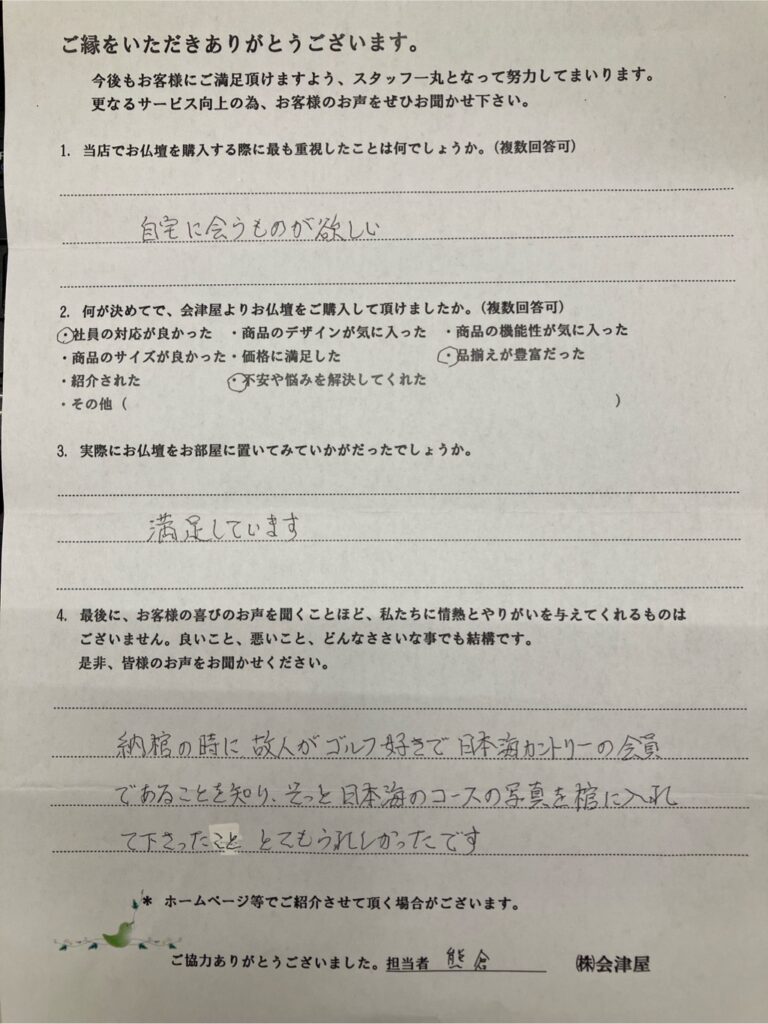 ご縁をいただきありがとうございます。
今後もお客様にご満足頂けますよう、スタッフ一丸となって努力してまいります。
更なるサービス向上の為、お客様のお声をぜひお聞かせ下さい。
1. 当店でお仏壇を購入する際に最も重視したことは何でしょうか。(複数回答可)
自宅に会うものが欲しい
2. 何が決めてで、会津屋よりお仏壇をご購入して頂けましたか。(複数回答可)
・社員の対応が良かった ・商品のデザインが気に入った ・商品の機能性が気に入った
・商品のサイズが良かった・価格に満足した ・品揃えが豊富だった
・紹介された ・不安や悩みを解決してくれた
・その他 ( )
3. 実際にお仏壇をお部屋に置いてみていかがだったでしょうか。
満足しています
4. 最後に、お客様の喜びのお声を聞くことほど、私たちに情熱とやりがいを与えてくれるものは
ございません。良いこと、悪いこと、どんなささいな事でも結構です。
是非、皆様のお声をお聞かせください。
納棺の時に故人がゴルフ好きで日本海カントリーの会員
であることを知り、そっと日本海のコースの写真を棺に入れ
て下さったこと とてもうれしかったです
* ホームページ等でご紹介させて頂く場合がございます。
ご協力ありがとうございました。担当者 熊倉 ㈱会津屋